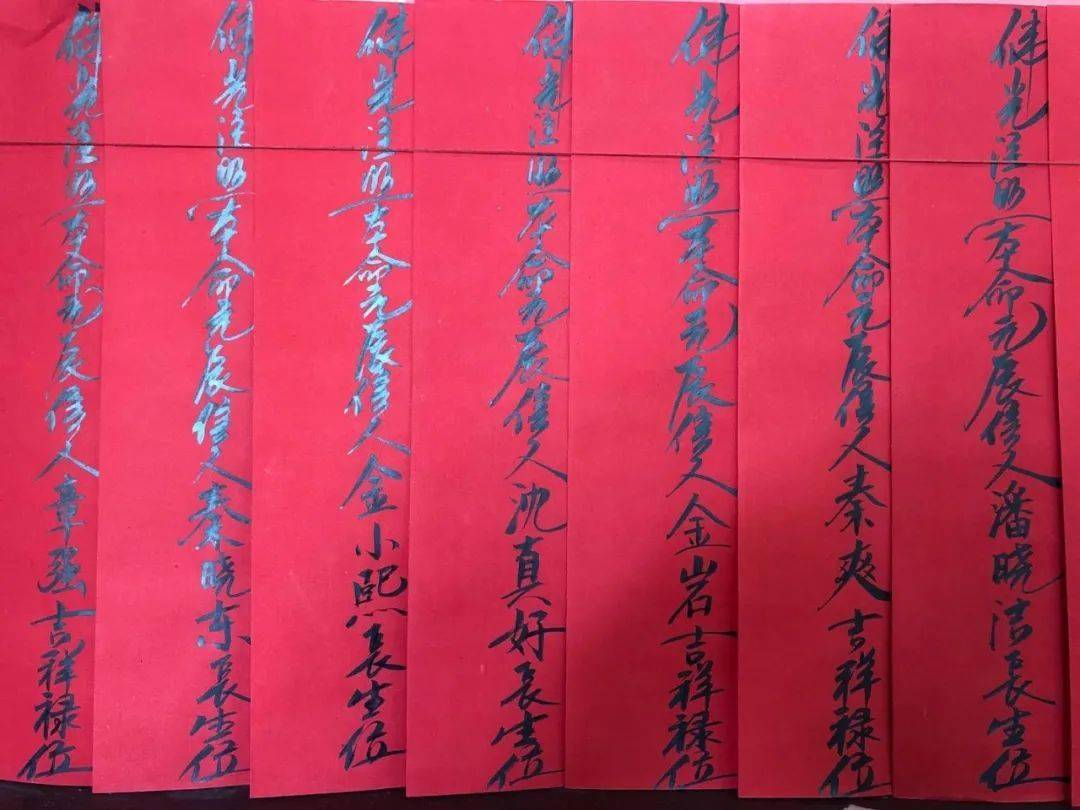 佛光注照本命元辰信人潘晓洁长生位
佛光注照本命元辰信人秦爽吉祥禄位
佛光注照本命元辰信人金岩吉祥禄位
佛光注照本命元辰信人沈真好长生位
佛光注照本命元辰信人金小熙长生位
佛光注照本命元辰信人秦晓东长生位
佛光注照本命元辰信人章强吉祥禄位